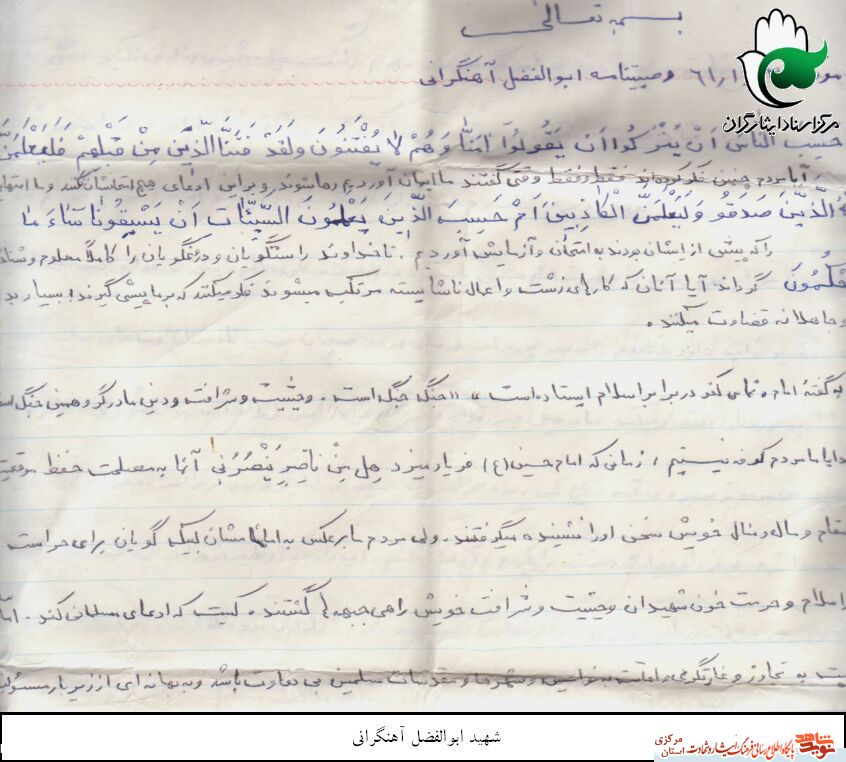 بسمه تعالی
وصیتنامه ابوالفضل آهنگرانی
مرکز اسناد ایثارگران
حسب الناس اَنْ یُتْرَکُوا اَن یَقُولُوا امَنَّا وَهُمْ لا یُفْتَنُونَ وَلَقَدْ فَتَنَّا الَّذینَ مِنْ قَبْلِهِمْ فَلَیَعْلَمَنَّ
آیا مردم چنین فکر کرده‌اند فقط و فقط وقتی گفتند ما ایمان آوردیم رها شوند و بر این ادعای هیچ امتحانشان نکنند و ما امتهای
الَّذینَ صَدَقُو وَلَیَعْلَمَنَّ الْکاذِبینَ اَمْ حَسِبَ الَّذینَ یَعْمَلُونَ السَّیِّئاتِ اَنْ یَسْبِقُونا سَاءَ مَا
را که پیش از ایشان بودند به امتحان و آزمایش آوردیم . تا خداوند راستگویان و دروغگویان را کاملاً معلوم و
حکُمُونَ گرداند آیا آنان که کارهای زشت و اعمال ناشایسته مرتکب میشوند فکر میکنند که بر ما پیشی گیرند ؛ بسیار بد
و جاهلانه قضاوت میکنند .
به گفتهٔ امام ، تمامی کفر در برابر اسلام ایستاده است ، «جنگ جنگ است . و حیثیت و شرافت و دین ما در گرو همین جنگ است
ما مردم کوفه نیستیم ، زمانی که امام حسین (ع) فریاد میزد هل مِنْ ناصِرٍ یَنْصُرُنی آنها به مصلحت حفظ موقعیت
مقام و مال و منال خویش سخن او را نشنیده میگرفتند . ولی مردم ما برعکس به امامشان لبیک گویان برای حراست
اسلام و حرمت خون شهیدان و حیثیت و شرافت خویش راهی جبهه ها گشتند . کیست که ادعای مسلمانی کند . اما
به تجاوز و غارتگری و به نوامیس و شهرها و مقدسات مسلمین بی تفاوت باشد و به بهانه ای از زیر بار
شهید ابوالفضل آهنگرانی
نوید شاهد پایگاه اطلاع رسانی فرهنگ ایثار و شهادت استان مرکزی